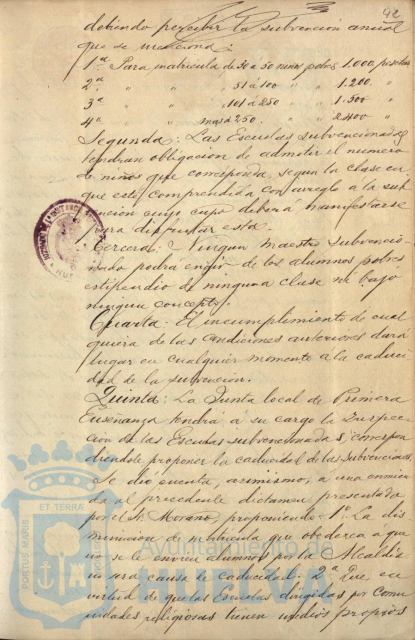 42
debiendo percibir la subvención anual
que se menciona:
1ª Para matrícula de 30 a 50 niños pobres 1.000 pesetas
2ª " " " 51 á 100 " " 1.200 "
3ª " " " 101 á 250 " " 1.500 "
4ª " " mas de 250. " " 2400 "
Segunda: Las Escuelas subvencionadas
tendran obligacion de admitir el numero
de niños que corresponda, segun la clase en
que esté comprendida con arreglo a la sub
vención cuyo cupo deberá manifestarse
para disfrutar esta.
Tercera: Ningun maestro subvencio-
nado podrá exigir de los alumnos pobres
estipendio de ninguna clase ni bajo
ningun concepto.
Cuarta: El incumplimiento de cual
quiera de las condiciones anteriores dará
lugar en cualquier momento a la caduci
dad de la subvencion.
Quinta: La Junta local de Primera
Enseñanza tendrá á su cargo la Inspec-
cion de las Escuelas subvencionadas, correspon
diendole proponer la caducidad de las subvenciones.
Se dio cuenta, asimismo, a una enmien
da al precedente dictamen presentada
por el Sr. Morano, proponiendo: 1º La dis
minucion de matricula que obedezca á que
no se le envien alumnos por la Alcaldia
no sera causa de caducidad. 2ª Que en
virtud de que las Escuelas dirigidas por comu
nidades religiosas tienen medios propios
PORTUS MARIS
ET TERRA
Ayuntamiento de